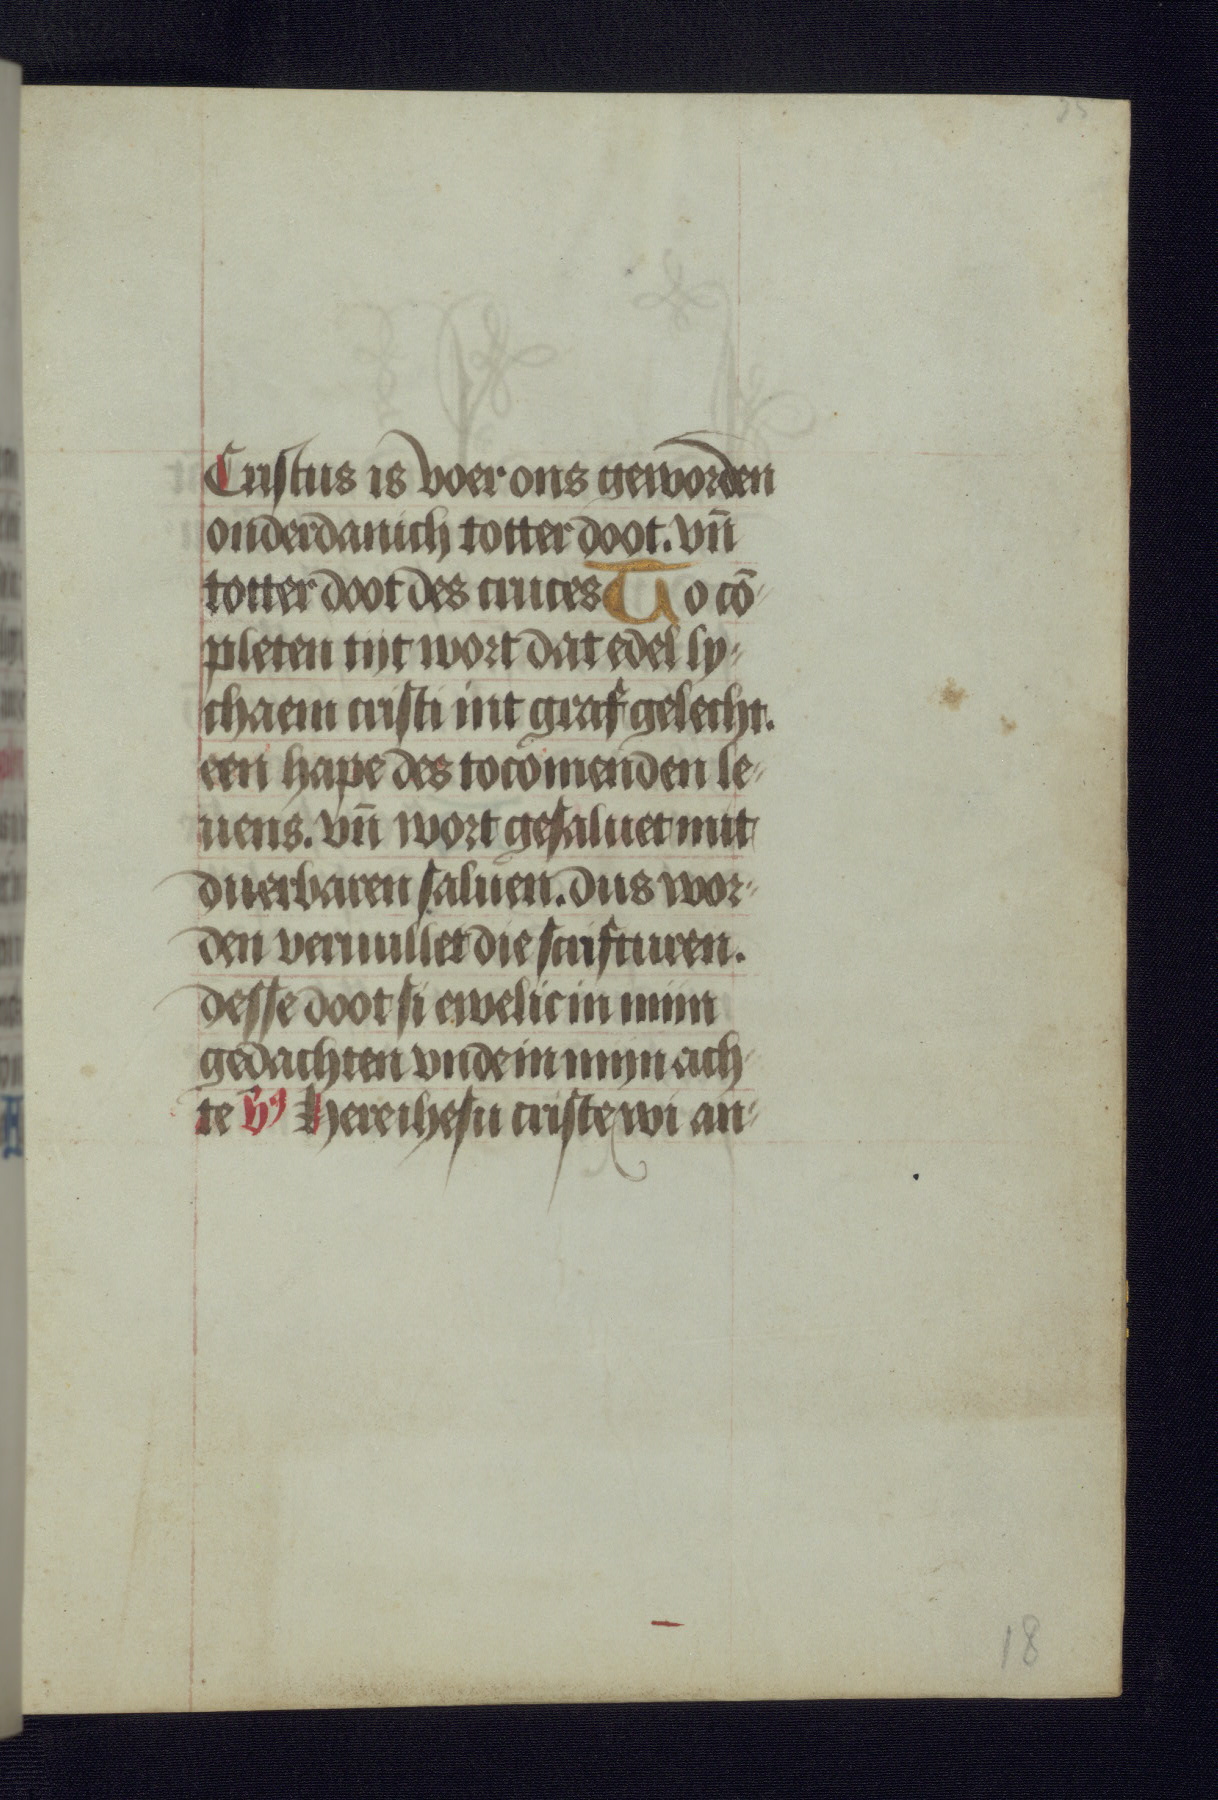 25
Cristus is voer ons geworden
onderdanich totter doot. vn̄
totter doot des cruces To cō-
pleten tijt wort dat edel ly-
chaem cristi int graf gelecht.
een hape des tocōmenden le-
uens. vn̄ wort gesaluet mit
duerbaren saluen. dus wor-
den veruullet die scrifturen.
desse doot si ewelic in mijn
gedachten vnde in mijn ach-
te Here ihesu criste wi an-
18